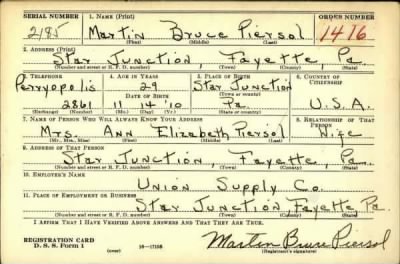 SERIAL NUMBER 1. NAME (Print) ORDER NUMBER
2185 Martin Bruce Piersol 1416
(First) (Middle) (Last)
2. ADDRESS (Print)
Star Junction, Fayette, Pa.
(Number and street or R. F. D. number) (Town) (County) (State)
3. TELEPHONE 4. AGE IN YEARS 5. PLACE OF BIRTH 6. COUNTRY OF CITIZENSHIP
Perryopolis 29 Star Junction
DATE OF BIRTH (Town or county)
2861 11 14 '10 Pa. U.S.A.
(Exchange) (Number) (Mo.) (Day) (Yr.) (State or country)
7. NAME OF PERSON WHO WILL ALWAYS KNOW YOUR ADDRESS 8. RELATIONSHIP OF THAT PERSON
Mrs. Ann Elizabeth Piersol Wife
(Mr., Mrs., Miss) (First) (Middle) (Last)
9. ADDRESS OF THAT PERSON
Star Junction, Fayette, Pa.
(Number and street or R. F. D. number) (Town) (County) (State)
10. EMPLOYER'S NAME
Union Supply Co.
11. PLACE OF EMPLOYMENT OR BUSINESS
Star Junction Fayette Pa.
(Number and street or R. F. D. number) (Town) (County) (State)
I AFFIRM THAT I HAVE VERIFIED ABOVE ANSWERS AND THAT THEY ARE TRUE.
REGISTRATION CARD
D. S. S. Form 1 (over) 16—17105 Martin Bruce Piersol
(Registrant's signature)